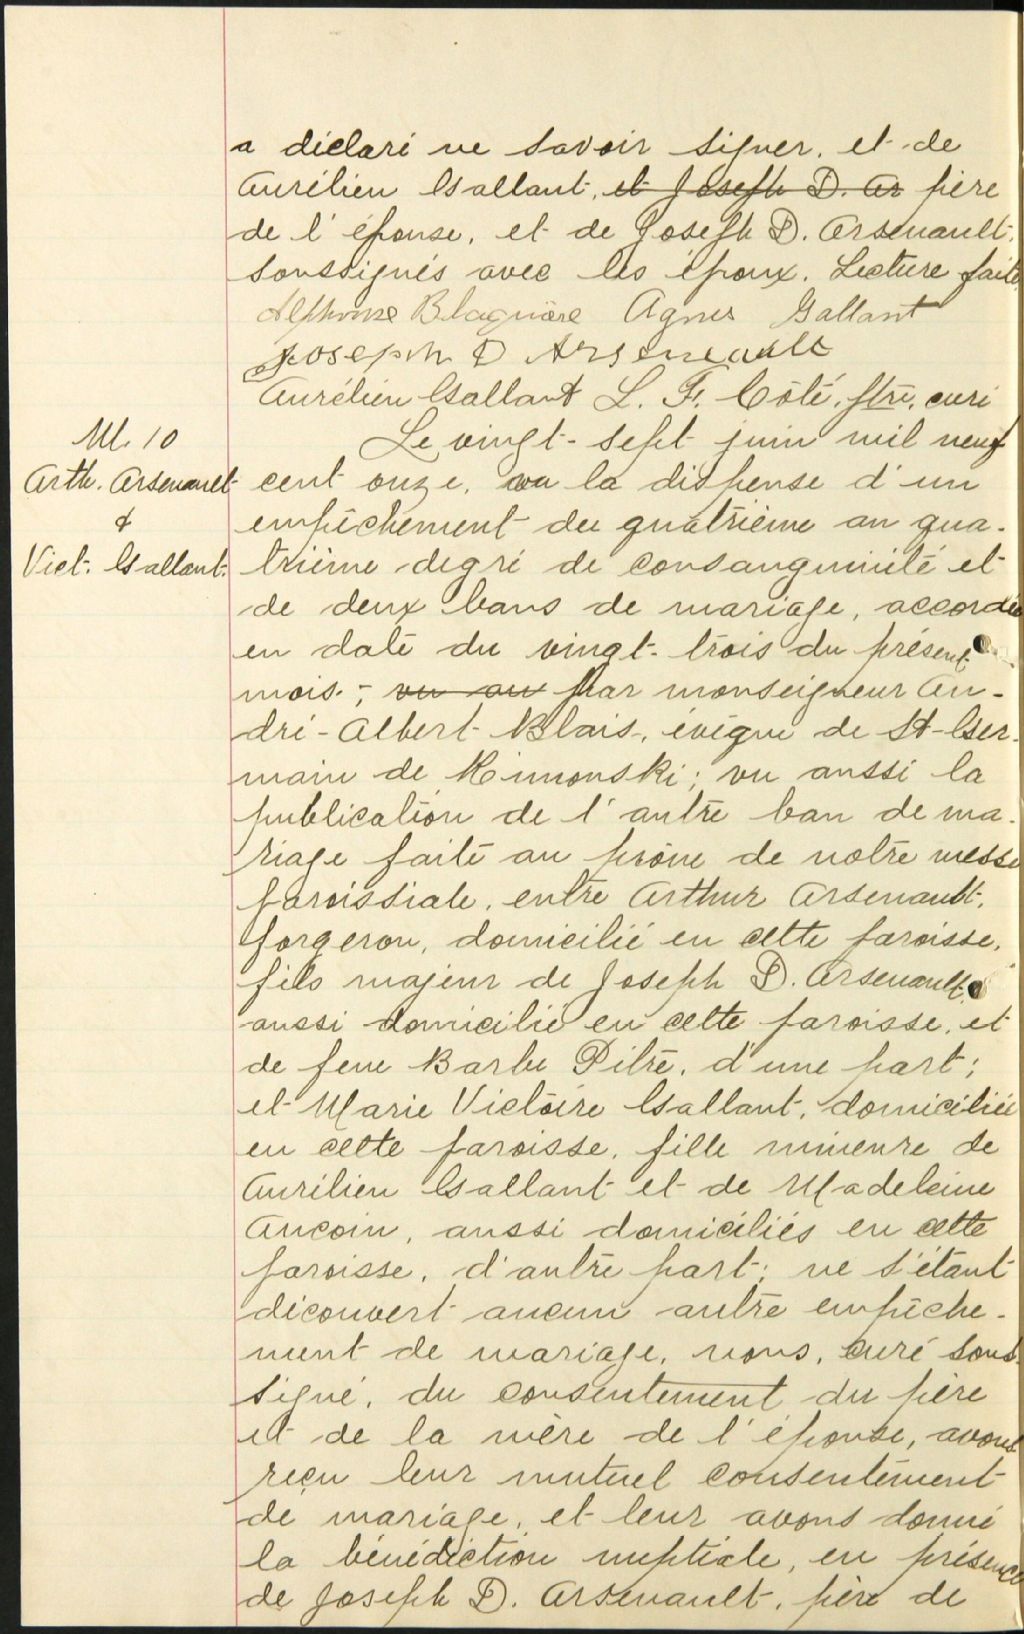 a déclaré ne savoir signer, et de
Aurélien Gallant, et Joseph D. Ar père
de l'épouse, et de Joseph D. Arsenault,
soussignés avec les époux. Lecture faite.
Alphonse Blaquière Agnes Gallant
Joseph D Arseneault
Aurélien Gallant L. F. Côté, ptre, curé
M. 10
Arth. Arsenault
&
Vict. Gallant.
Le vingt-sept juin mil neuf
cent onze, vu la dispense d'un
empêchement du quatrième au qua-
trième degré de consanguinité et
de deux bans de mariage, accordée
en date du vingt-trois du présent
mois, vu au par monseigneur An-
dré-Albert Blais, évêque de St-Ger-
main de Rimouski; vu aussi la
publication de l'autre ban de ma-
riage faite au prône de notre messe
paroissiale, entre Arthur Arsenault,
forgeron, domicilié en cette paroisse,
fils majeur de Joseph D. Arsenault,
aussi domicilié en cette paroisse, et
de feue Barbe Pitre, d'une part;
et Marie Victoire Gallant, domiciliée
en cette paroisse, fille mineure de
Aurélien Gallant et de Madeleine
Aucoin, aussi domiciliés en cette
paroisse, d'autre part; ne s'étant
découvert aucun autre empêche-
ment de mariage, nous, curé sous-
signé, du consentement du père
et de la mère de l'épouse, avons
reçu leur mutuel consentement
de mariage, et leur avons donné
la bénédiction nuptiale, en présence
de Joseph D. Arsenault, père de